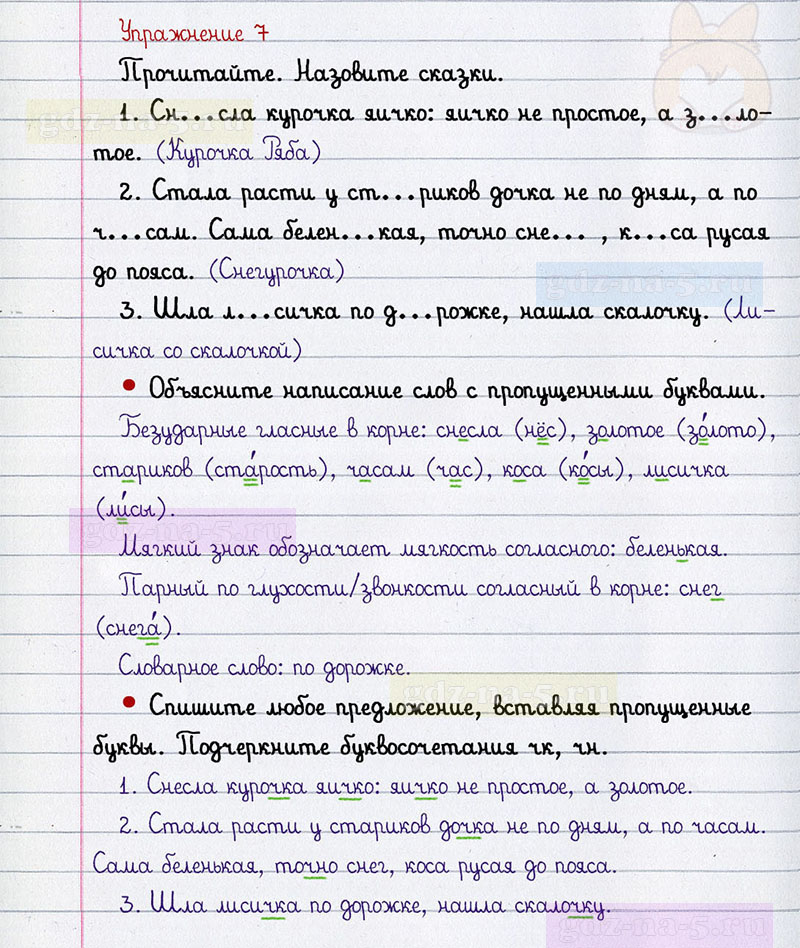 Упражнение 7
Прочитайте. Назовите сказки.
1. Сн...сла курочка яичко: яичко не простое, а з...ло-
gdz-na-5.ru
тое. (Курочка Ряба)
2. Стала расти у ст...риков дочка не по дням, а по
ч...сам. Сама белен...кая, точно сне... , к...са русая
до пояса. (Снегурочка)
gdz-na-5.ru
3. Шла л...сичка по д...рожке, нашла скалочку. (Ли-
сичка со скалочкой)
• Объясните написание слов с пропущенными буквами.
Безударные гласные в корне: снесла (нёс), золотое (зо́лото),
стариков (ста́рость), часам (час), коса (ко́сы), лисичка
(ли́сы).
gdz-na-5.ru
Мягкий знак обозначает мягкость согласного: беленькая.
Парный по глухости/звонкости согласный в корне: снег
(снега́).
Словарное слово: по дорожке.
gdz-na-5.ru
• Спишите любое предложение, вставляя пропущенные
буквы. Подчеркните буквосочетания чк, чн.
1. Снесла курочка яичко: яичко не простое, а золотое.
2. Стала расти у стариков дочка не по дням, а по часам.
Сама беленькая, точно снег, коса русая до пояса.
3. Шла лисичка по дорожке, нашла скалочку.
gdz-na-5.ru